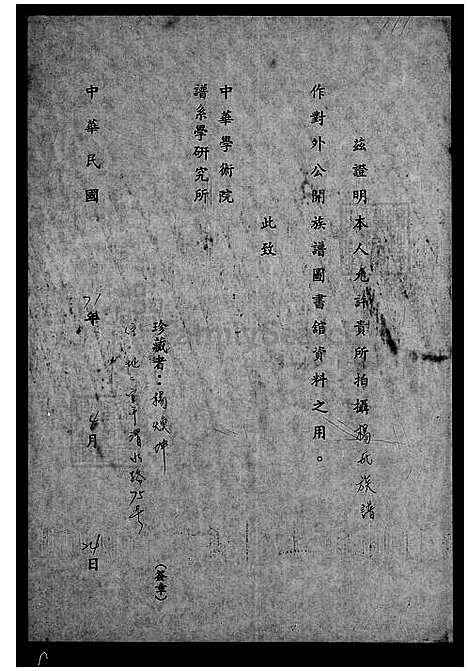 茲證明本人允許貴所拍攝楊氏族譜
作對外公開族譜圖書館資料之用。
此致
中華學術院
譜系學研究所
珍藏者：楊煥坤
(簽章)
住址：市渭水路75號
中華民國71年8月24日